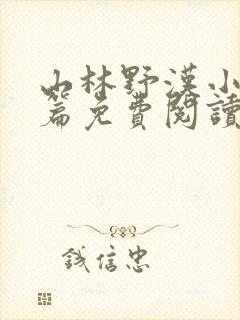 山林野漢小
篇免費閱讀
鈛信忠